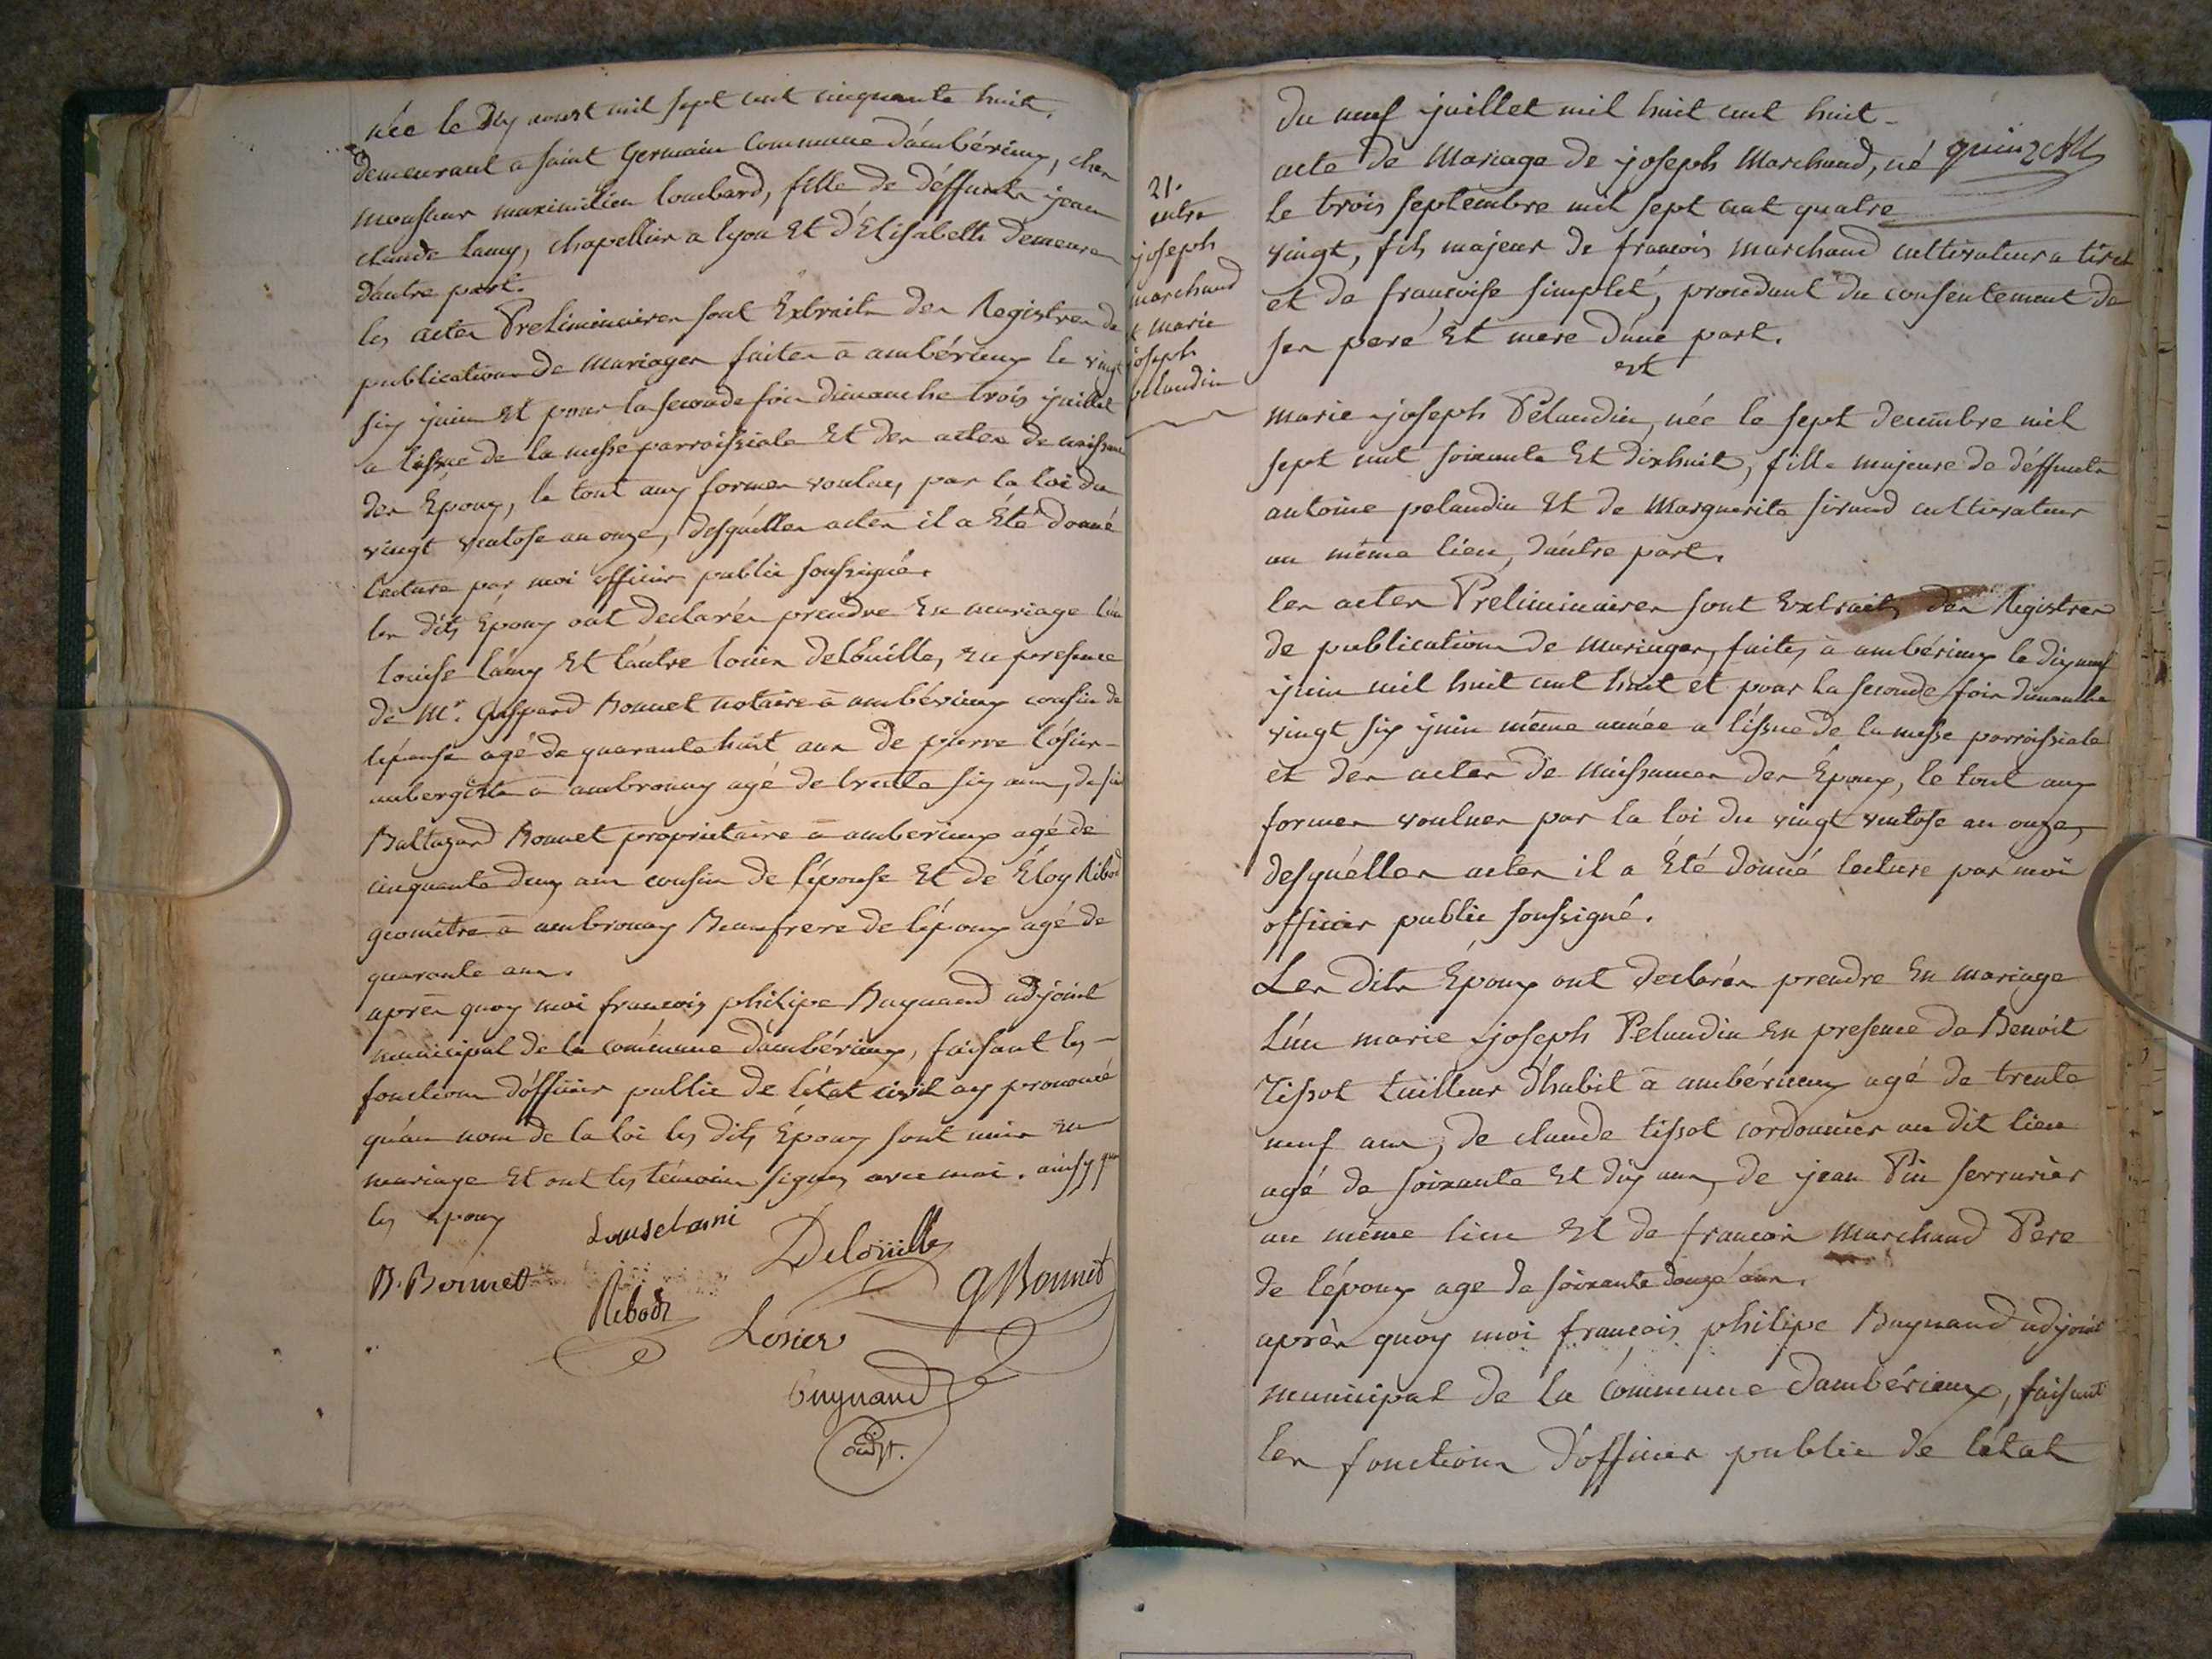 née le dix aoust mil sept cent cinquante huit,
demeurant a saint Germain commune d'ambérieux, chez
monsieur maximilien lombard, fille de déffunts jean
claude lamy, chapellier a lyon Et d'Elisabeth
d'autre part.
les actes Preliminaires sont Extraits des Registres de
publications de mariages faites à ambérieux le vingt
six juin Et pour la seconde fois dimanche trois juillet
a lissue de la messe parroissiale Et des actes de naissance
des Époux, le tout aux formes voulues par la loi du
vingt ventose an onze, desquélles actes il a Été donné
lecture par moi officier public soussigné.
les dits Époux ont declarés prendre En mariage l'un
louise lamy Et l'autre louis delouille, en presence
de Mr. Gaspard Bonnet notaire à ambérieux cousin de
lépouse agé de quarante huit ans de pierre losier
aubergiste à ambronay agé de trente six ans, de
Baltazard Bonnet proprietaire à amberieux agé de
cinquante deux ans cousin de l'épouse Et de Éloy Ribod
géomètre à ambronay Beaufrere de l'époux agé de
quarante ans.
après quoy moi francois philipe Buynand adjoint
municipal de la commune d'ambérieux, faisant les
fonctions d'officier public de l'état civil ay prononcé
qu'au nom de la loi les dits Époux sont unis en
mariage Et ont les témoins signés avec moi. ainsy que
les époux
Delouille
B. Bonnet
G Bonnet
Ribod
Losier
Buynand
adjt.
21.
entre
joseph
marchand
& marie
joseph
pelaudin
du neuf juillet mil huit cent huit
acte de Mariage de joseph Marchand, né
le trois septembre mil sept cent quatre
vingt, fils majeur de francois marchand cultivateur a tiret
et de francoise simplet, procedant du consentement de
ses peré Et mere d'une part.
Et
marie joseph Pélaudin, née le sept decembre mil
sept cent soixante Et dixhuit, fille majeure de déffunts
antoine pelaudin Et de Marguerite siraud cultivateur
au même lieu, d'autre part.
les actes Preliminaires sont Extraits des Registres
de publications de mariages, faites à ambérieux le dix neuf
juin mil huit cent huit et pour la seconde fois dimanche
vingt six juin même année a l'issue de la messe parroissiale
et des actes de naissances des Époux, le tout aux
formes voulues par la loi du vingt ventose an onze,
desquélles actes il a Été donné lecture par moi
officier public soussigné.
Les dits Époux ont declarés prendre En mariage
L'un marie joseph Pelaudin en presence de Benoit
Tissot tailleur d'habit à ambérieux agé de trente
neuf ans, de claude tissot cordonnier au dit lieu
agé de soixante Et dix ans, de jean Pin serrurier
au même lieu Et de francois Marchand Pere
de l'époux age de soixante douze ans.
après quoy moi francois philipe Buynand adjoint
municipal de la commune d'ambérieux, faisant
les fonctions d'officier public de létat